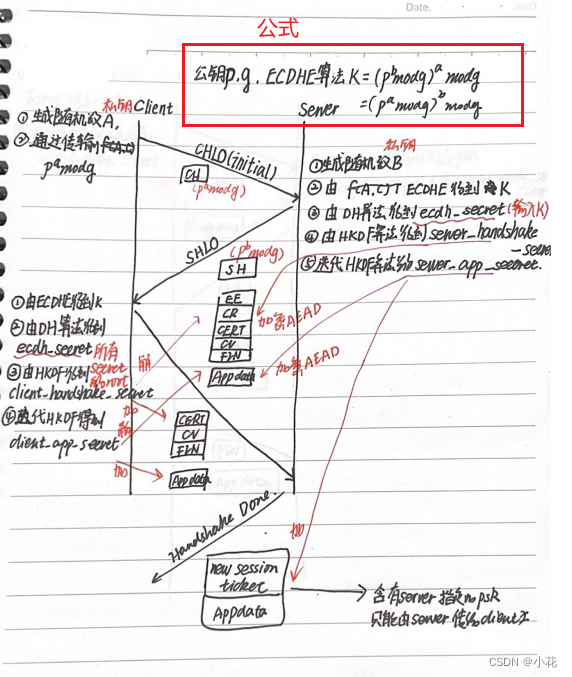 Date.
公式
公钥p.g. ECDHE算法 K=(p^b modg)^a modg
=(p^a modg)^b modg
私钥 Client
Server
①生成随机数A,
②通过传输f(A,C)
p^a modg
CHLO(initial)
CH
(p^a modg)
私钥
①生成随机数B
②由 f(A,C)了 ECDHE得到K
③由DH算法得到ecdh_secret(输入K)
④由HKDF算法得到server_handshake
-secret
⑤迭代HKDF算法得server_app_secret.
SHLO
(p^b modg)
SH
EE
CR
CERT
CV
FIN
加密AEAD
App data
加密AEAD
①由ECDHE得到K
②由DH算法得到
ecdh_secret 所有
secret
的root
③由HKDF得到
client_handshake_secret
④迭代HKDF得到
client_app_secret
解
加
解
加
CERT
CV
FIN
App data
Handshake Done.
加
new session
ticket
Appdata
含有server指定的psk
只能由server传给client
CSDN @小花